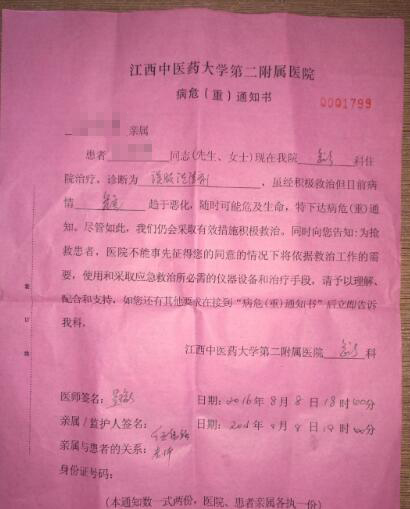 江西中医药大学第二附属医院
病危(重)通知书
0001799
亲属
患者 同志(先生、女士)现在我院 急诊 科住
院治疗，诊断为 误服泡腾剂 ，虽经积极救治但目前病
情 趋于恶化，随时可能危及生命，特下达病危(重)通
知。尽管如此，我们仍会采取有效措施积极救治。同时向您告知：为抢
救患者，医院不能事先征得您的同意的情况下将依据救治工作的需
要，使用和采取应急救治所必需的仪器设备和治疗手段，请予以理解、
配合和支持，如您还有其他要求在接到“病危(重)通知书”后立即告诉
我科。
江西中医药大学第二附属医院 急诊 科
医师签名： 日期：2016年8月8日18时00分
亲属/监护人签名： 日期：2016年8月8日18时00分
亲属与患者的关系：
身份证号码：
(本通知数一式两份，医院、患者亲属各执一份)
装订线